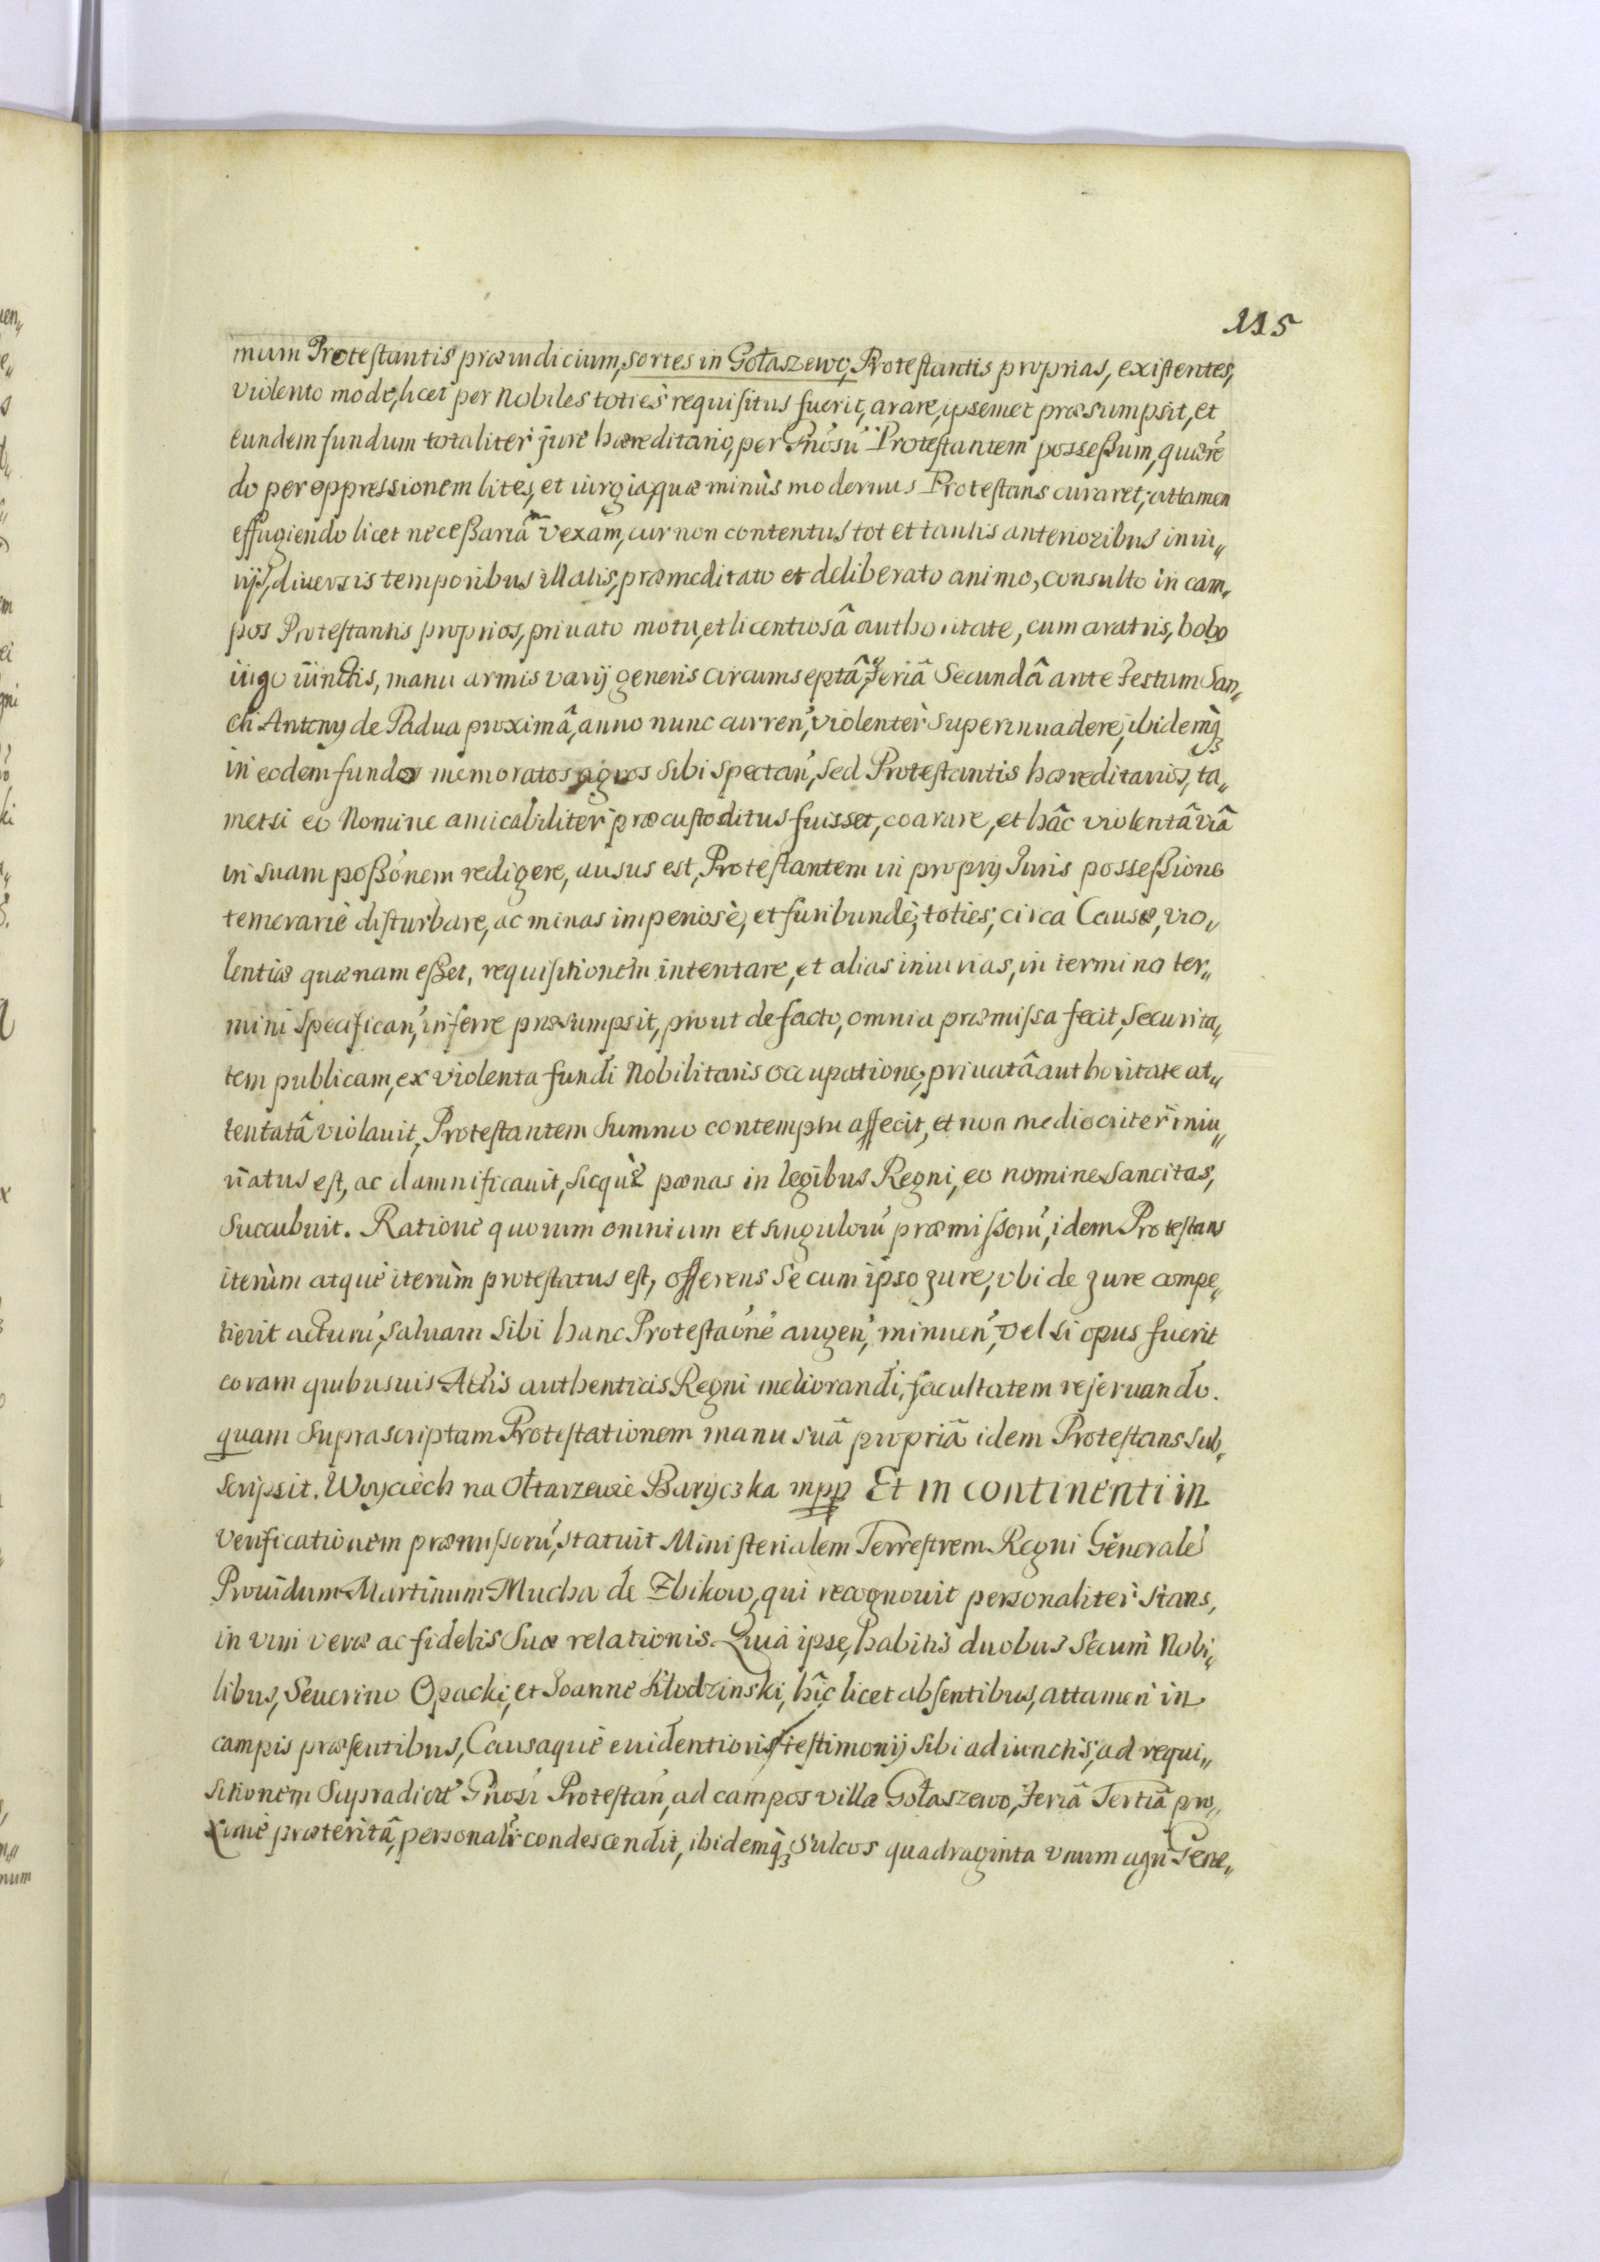 115
mum Protestantis præiudicium, sortes in Gołaszewo, Protestantis proprias, existentes,
violento modo, licet per Nobiles toties requisitus fuerit, arare, ipsemet præsumpsit, et
eundem fundum totaliter jure hæreditario, per Gnosu Protestantem possessum, quære
do per oppressionem lites, et iurgia, quæ minùs modernus Protestans curaret, attamen
effugiendo licet necessariam vexam, cur non contentus tot et tantis anterioribus iniu„
rijs, diuersis temporibus illatis, præmeditato et deliberato animo, consulto in cam„
pos Protestantis proprios, priuato motu, et licentiosâ authoritate, cum aratris, bobo
iugo iunctis, manu armis varij generis circumseptâ, feriâ Secundâ ante Festum San„
cti Antony de Padua proximâ, anno nunc curren, violenter superinuadere, ibidemq
in eodem fundo memoratos agros sibi spectan, sed Protestantis hæreditarios, ta„
metsi eo Nomine amicabiliter præcustoditus fuisset, coarare, et hâc violentâ viâ
in suam possonem redigere, ausus est, Protestantem in proprij Juris possessione
temerariè disturbare, ac minas imperiosè, et furibundè, toties, circa Causæ, vio„
lentiæ quænam esset, requisitionem intentare, et alias iniurias, in termino ter„
mini specifican, inferre præsumpsit, prout de facto, omnia præmissa fecit, Securita„
tem publicam, ex violenta fundi Nobilitaris occupatione, priuatâ authoritate at„
tentatâ violauit, Protestantem summo contemptu affecit, et non mediocriter iniu„
riatus est, ac damnificauit, sicquè pænas in legibus Regni, eo nomine sancitas,
succubuit. Ratione quorum omnium et singuloru præmissoru, idem Protestans
iterùm atquè iterùm protestatus est, offerens se cum ipso jure, vbi de jure compe„
tierit acturu, saluam sibi hanc Protestaone augen, minuen, vel si opus fuerit
coram quibusuis Actis authenticis Regni meliorandi, facultatem reseruando.
quam suprascriptam Protestationem manu suâ propriâ idem Protestans sub„
scripsit. Woyciech na Ołtarzewie Baryczka mpp Et in continenti in
Verificationem præmissoru, statuit Ministerialem Terrestrem Regni Generale
Prouidum Martinum Mucha de Zbikow, qui recognouit personaliter stans,
in vim veræ ac fidelis suæ relationis. Quia ipse, habitis duobus secum Nobi„
libus, Seuerino Opacki, et Joanne Kłodzinski, hîc licet absentibus, attamen in
campis præsentibus, Causaquè euidentioris testimonij sibi adiunctis, ad requi„
sitionem supradicti Gnosi Protestan, ad campos villæ Gołaszewo, feriâ Tertiâ pro„
ximè præteritâ, personalr condescendit, ibidemq Sulcos quadraginta vnum agri